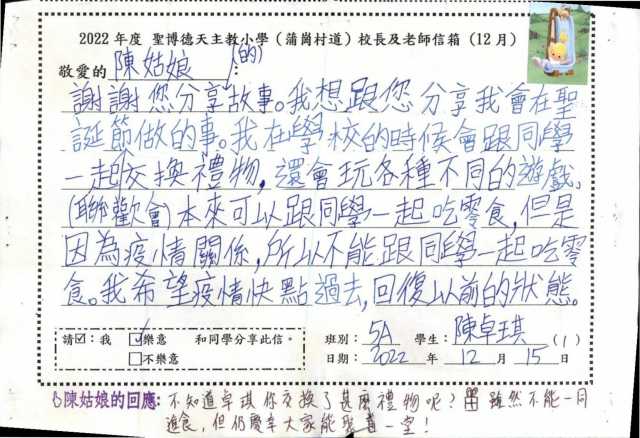 2022年度 聖博德天主教小學（蒲崗村道）校長及老師信箱（12月）
敬愛的 陳姑娘(的)：
謝謝您分享故事。我想跟您分享我會在聖
誕節做的事。我在學校的時候會跟同學
一起交換禮物，還會玩各種不同的遊戲，
(聯歡會)本來可以跟同學一起吃零食，但是
因為疫情關係，所以不能跟同學一起吃零
食。我希望疫情快點過去，回復以前的狀態。
請☑：我 ☑樂意 和同學分享此信。 班別：5A 學生：陳卓琪（1）
□不樂意 日期：2022年12月15日
陳姑娘的回應：不知道卓琪你交換了甚麼禮物呢？雖然不能一同
進食，但仍慶幸大家能聚首一堂！